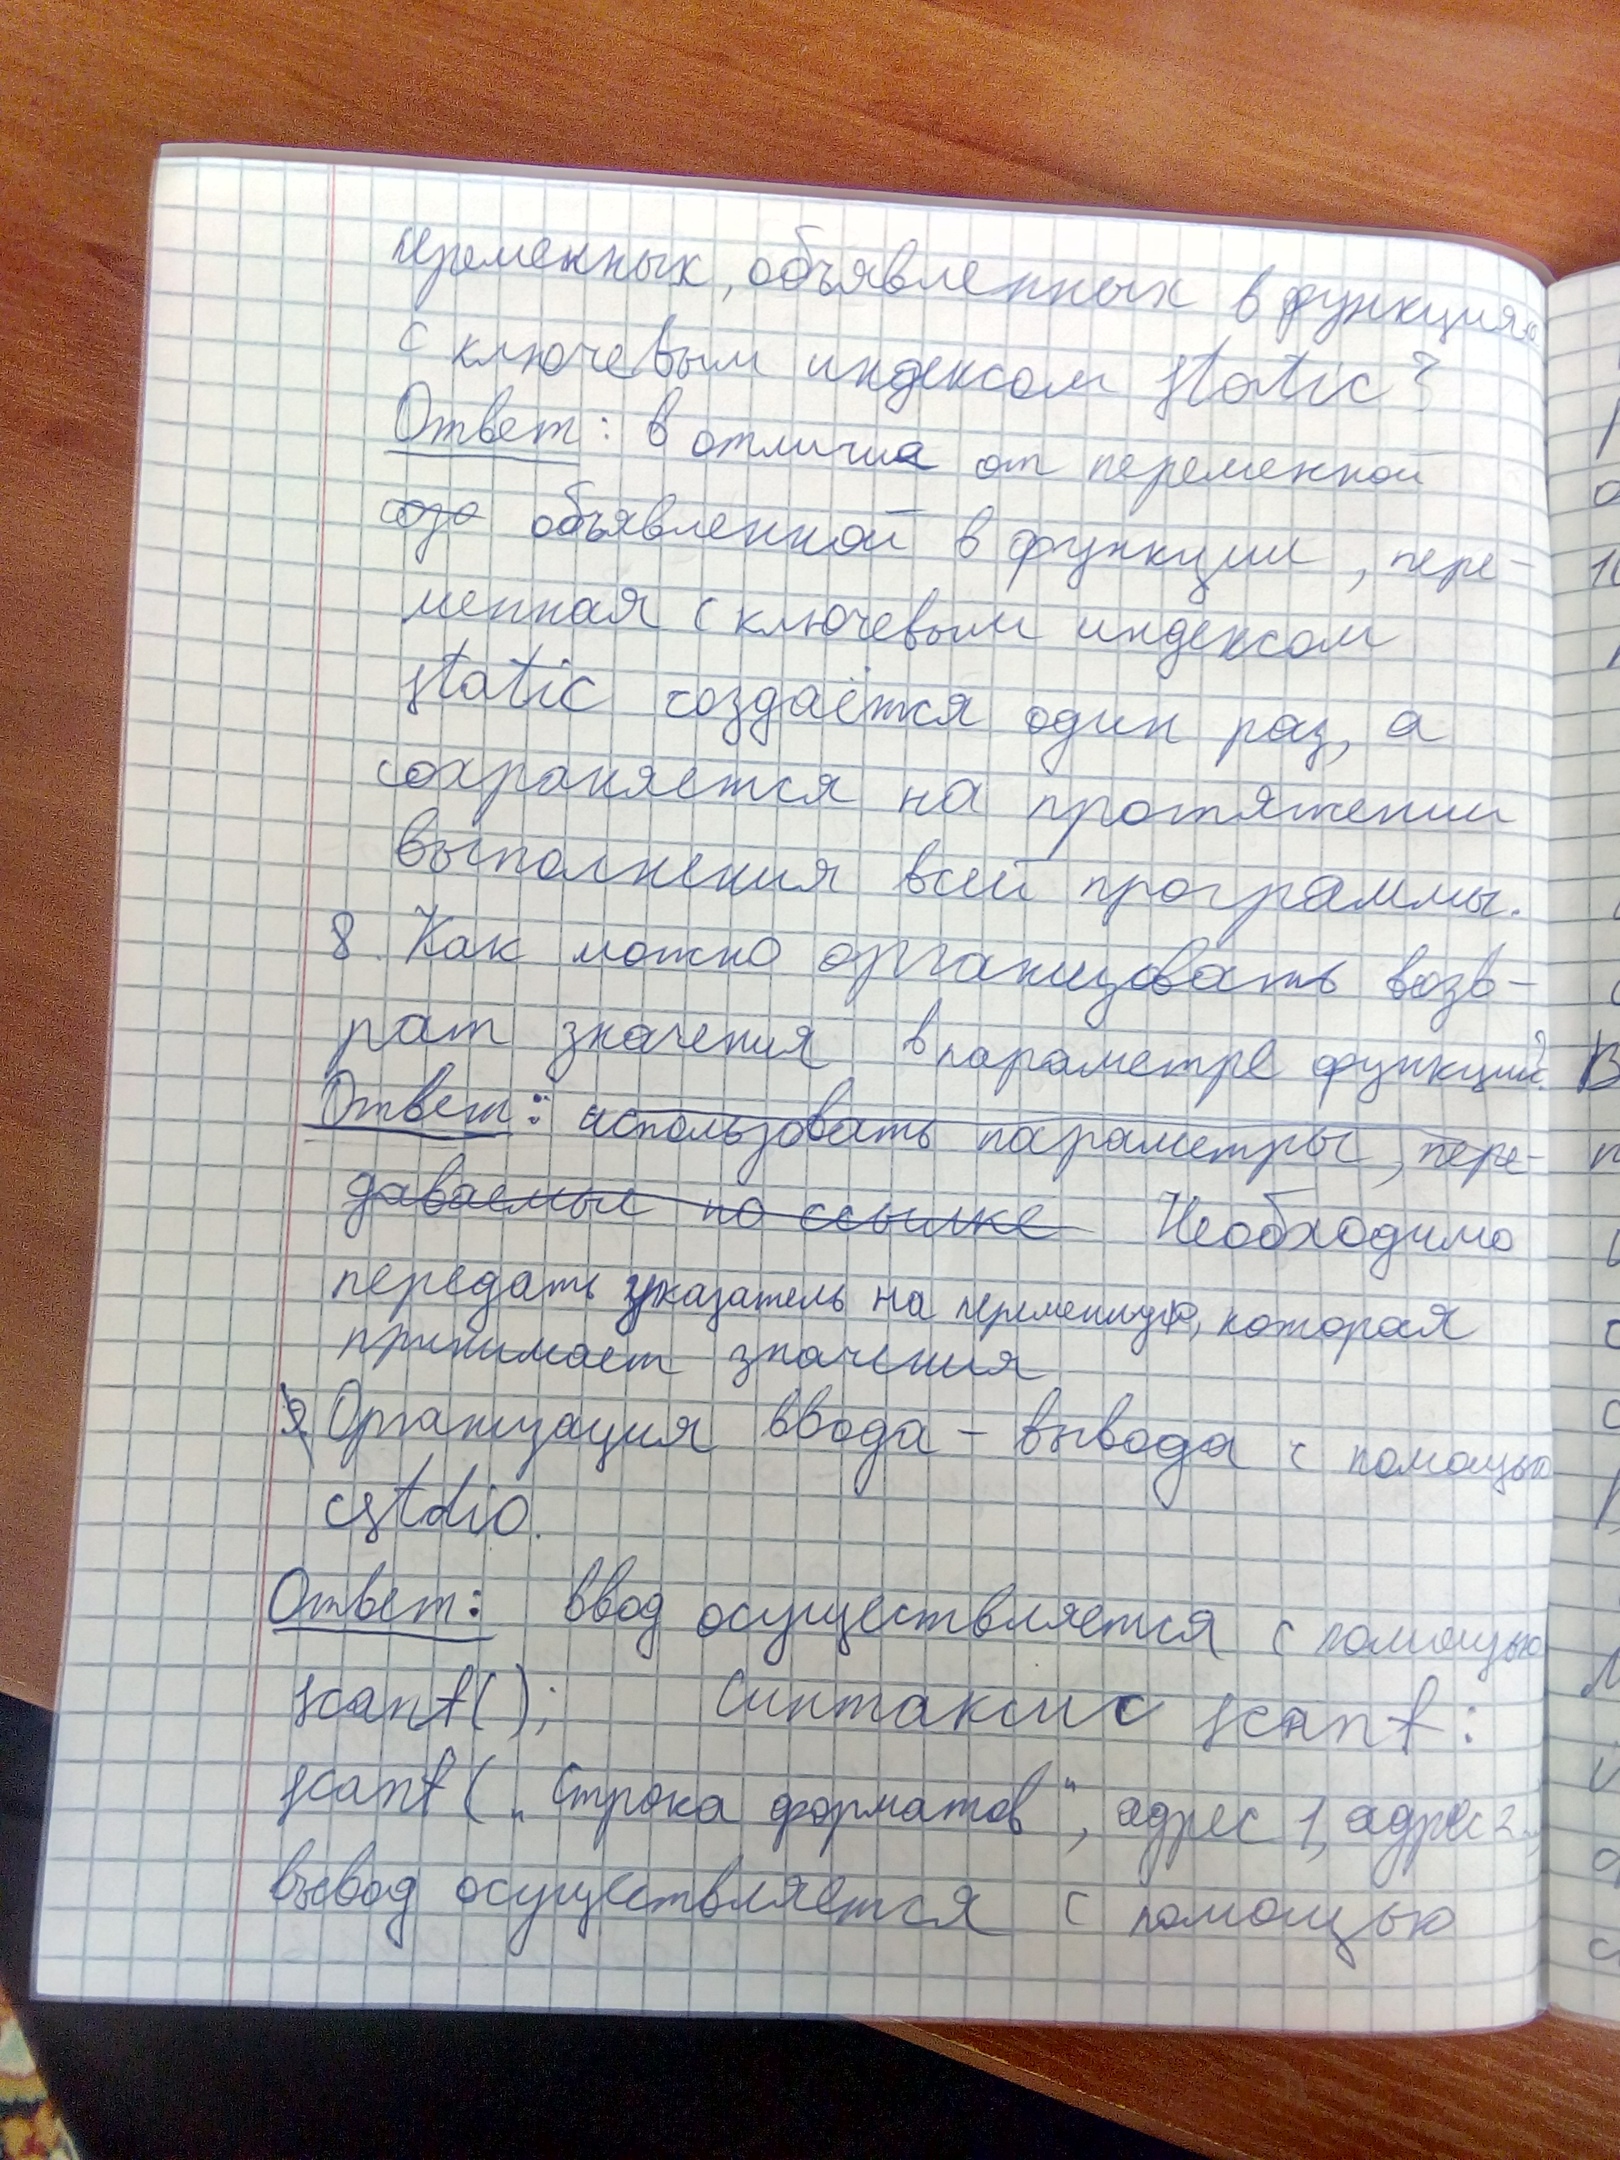 переменных, объявленных в функциях
с ключевым индексом static?
Ответ: в отличиа от переменной
созо объявленной в функции, пере-
менная с ключевым индексом
static создаётся один раз, а
сохраняется на протяжении
выполнения всей программы.
8. Как можно организовать возв-
рат значения в параметре функций?
Ответ: использовать параметры, пере-
даваемые по ссылке Необходимо
передать указатель на переменную, которая
принимает значения
9. Организация ввода - вывода с помощью
cstdio.
Ответ: ввод осуществляется с помощью
scanf(); Синтаксис scanf:
scanf („Строка форматов“, адрес 1, адрес 2...
вывод осуществляется с помощью